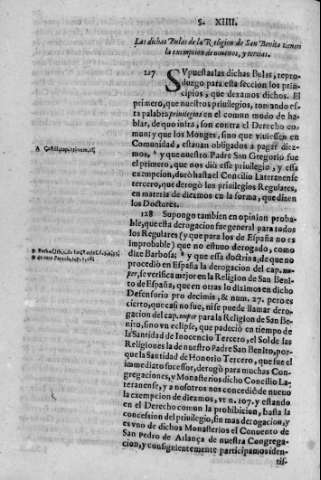 §. XIIII.
Las dichas Bulas de la Religion de San Benito tienen
la exempcion de nouenos, y tercias.
127 SVpuestas las dichas Bulas, repro-
duzgo para esta seccion los prin-
cipios, que dexamos dichos. El
primero, que nuestros priuilegios, tomando es-
ta palabra priuilegios en el comun modo de ha-
blar, de que infra, son contra el Derecho co-
mun; y que los Monges, sino que viuiessen en
Comunidad, estauan obligados a pagar diez-
mos, a y que nuestro Padre San Gregorio fue
el primero, que nos diò esse priuilegio, y essa
exempcion, durò hasta el Concilio Lateranense
tercero, que derogò los priuilegios Regulares,
en materia de diezmos en la forma, que dizen
los Doctores.
128 Supongo tambien en opinion proba-
ble, que esta derogacion fue general para todos
los Regulares (y que para los de España no es
improbable) que no estuuo derogado, como
dize Barbosa: b y que essa doctrina, de que no
procediò en España la derogacion del cap. nu-
per, se verifica mejor en la Religion de San Beni-
to de España, que en otras lo diximos en dicho
Defensorio pro decimis, & num. 27. pero es
cierto, que casi no fue, ni se puede llamar dero-
gacion del cap. nuper para la Religion de San Be-
nito, sino vn eclipse, que padeciò en tiempo de
la Santidad de Inocencio Tercero, el Sol de las
Religiones la de nuestro Padre San Benito, por-
que la Santidad de Honorio Tercero, que fue el
immediato sucessor, derogò para muchas Con-
gregaciones, y Monasterios dicho Concilio La-
teranense, y a nosotros nos concediò de nueuo
la exempcion de diezmos, vt n. 107. y estando
en el Derecho comun la prohibicion, basta la
concession del priuilegio, sin mas derogacion, y
es vno de dichos Monasterios el Conuento de
San Pedro de Arlança de nuestra Congrega-
cion, y consiguientemente participamos iden-
tif-